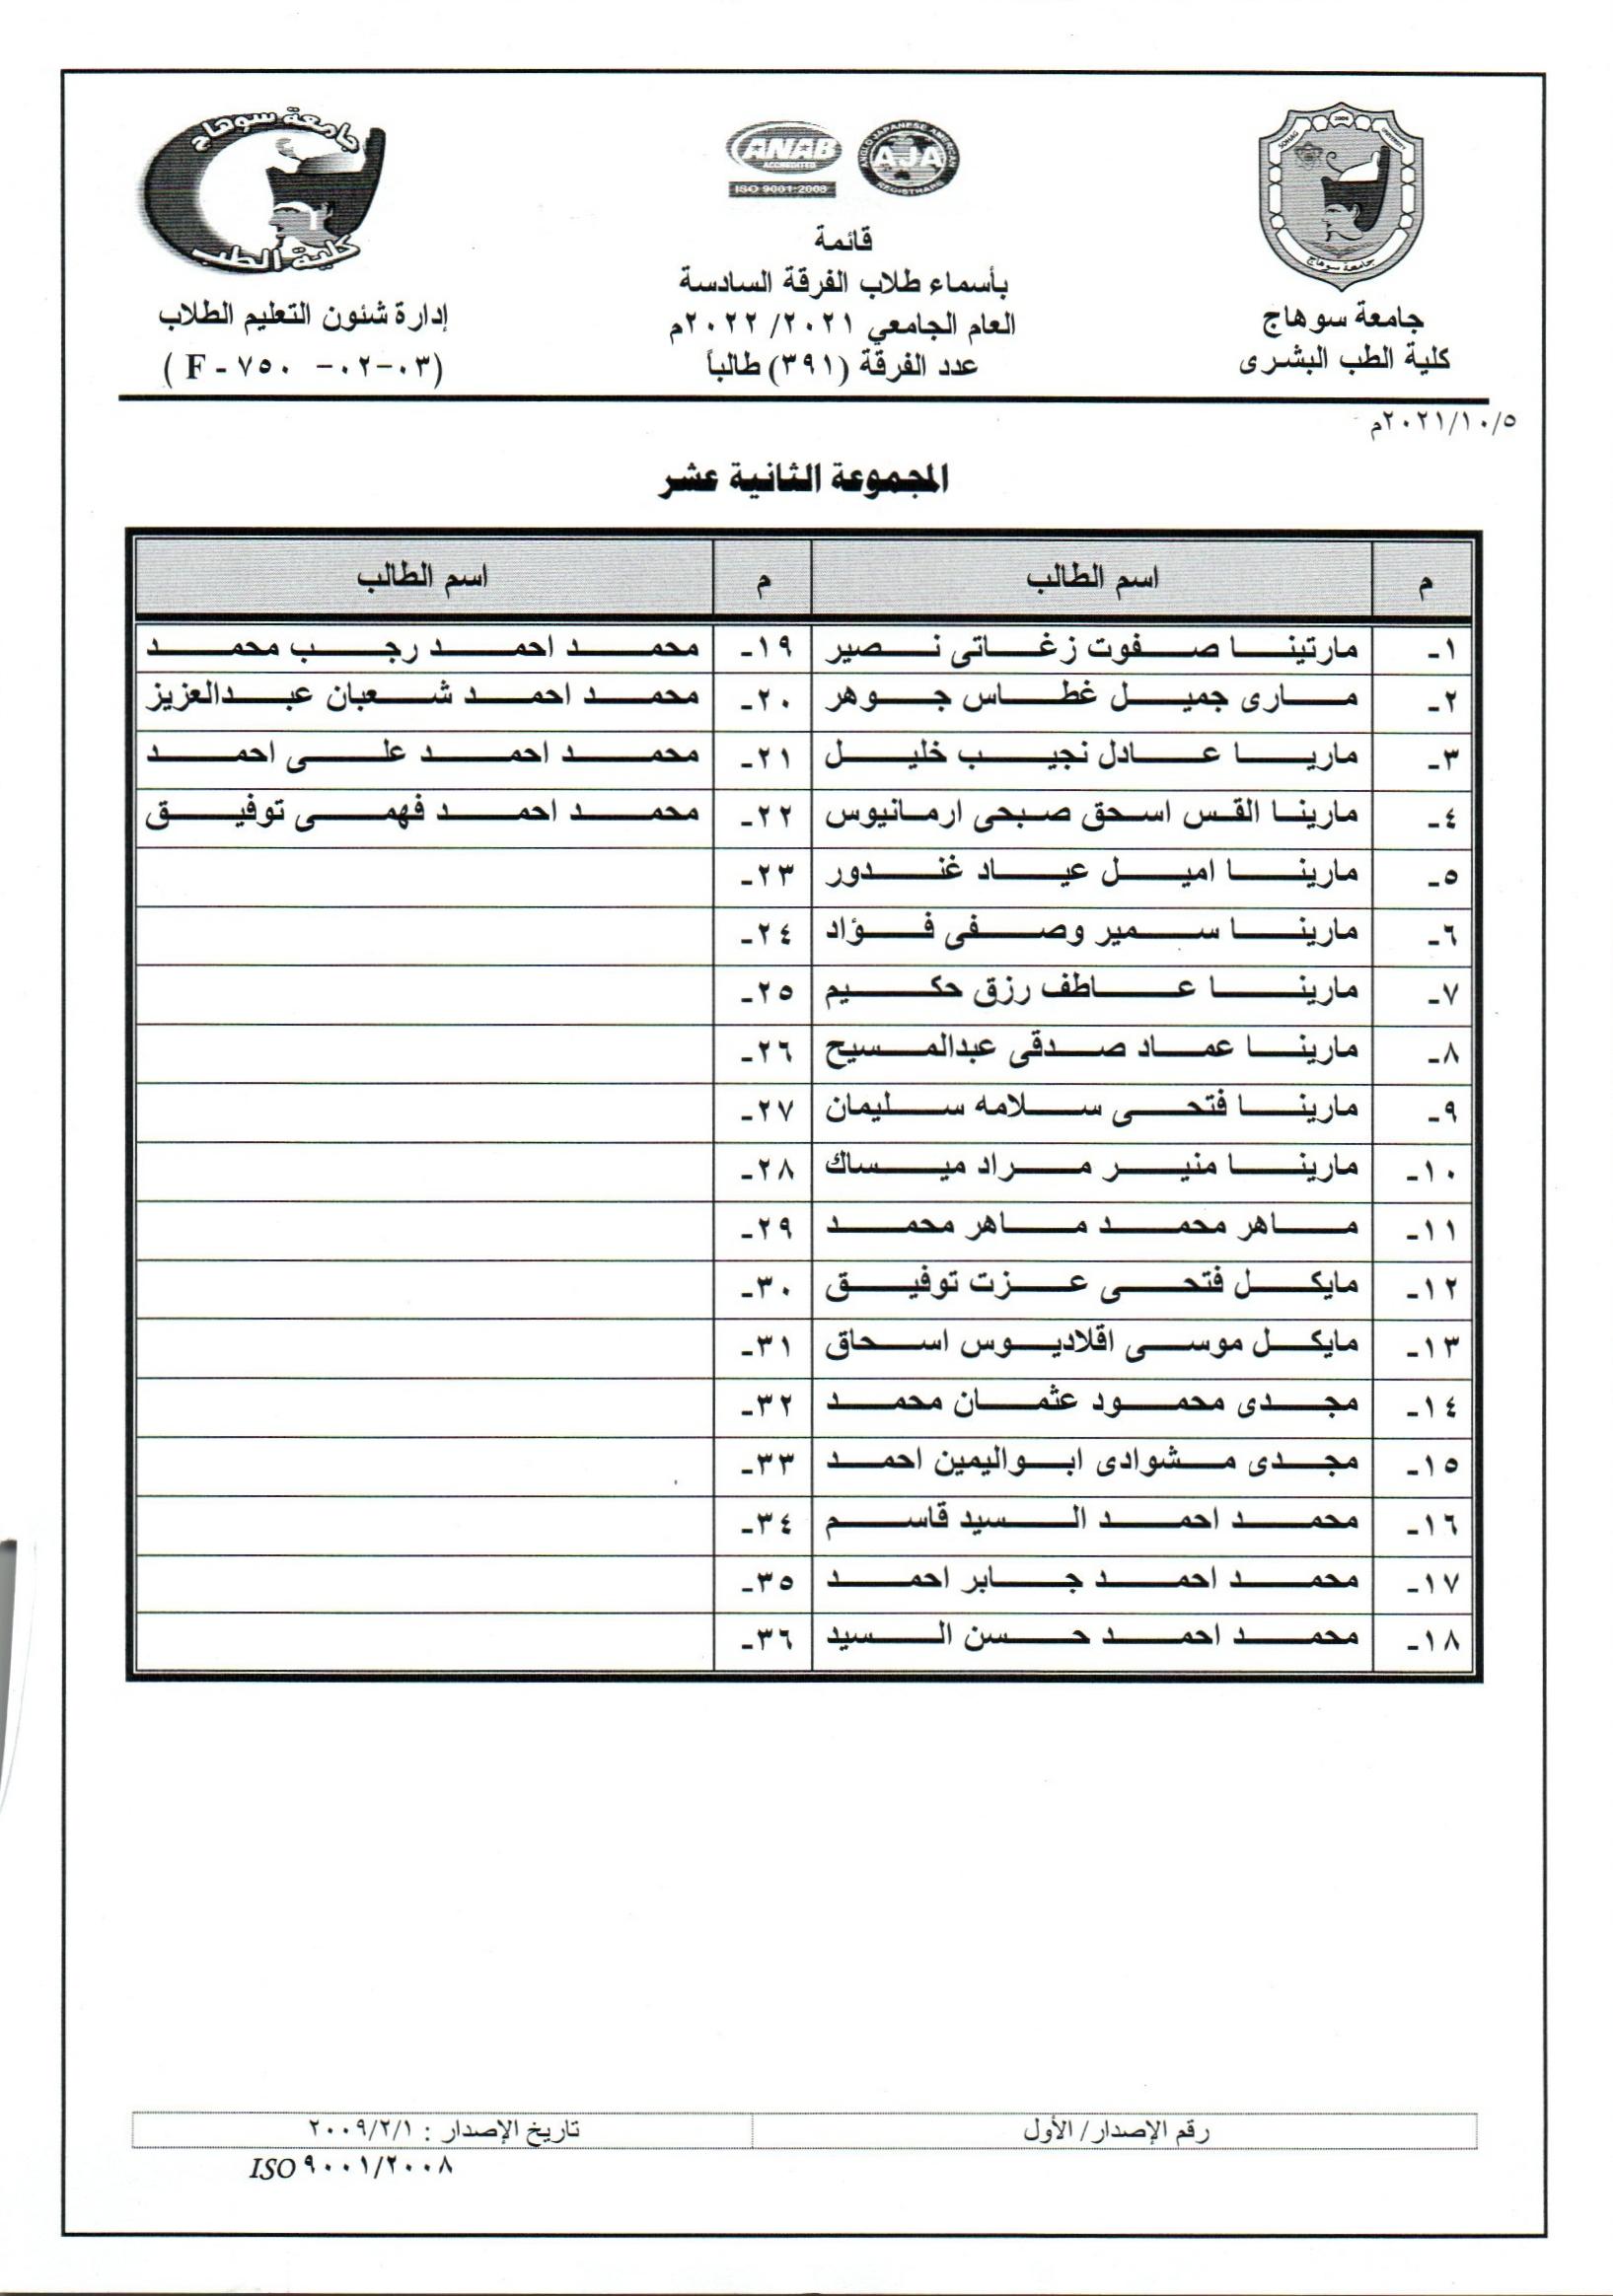 جامعة سوهاج
كلية الطب
ANAB
ACCREDITED
ISO 9001:2008
ANGLO JAPANESE AMERICAN
AJA
REGISTRARS
SOHAG 2006 UNIVERSITY
جامعة سوهاج
جامعة سوهاج
كلية الطب البشرى
قائمة
بأسماء طلاب الفرقة السادسة
العام الجامعي ٢٠٢١/ ٢٠٢٢م
عدد الفرقة (٣٩١) طالباً
إدارة شئون التعليم الطلاب
(F - ٧٥٠ -٠٢-٠٣)
٢٠٢١/١٠/٥م
المجموعة الثانية عشر
م اسم الطالب م اسم الطالب
١- مارتينا صفوت زغاتى نصير ١٩- محمد احمد رجب محمد
٢- مارى جميل غطاس جوهر ٢٠- محمد احمد شعبان عبدالعزيز
٣- ماريا عادل نجيب خليل ٢١- محمد احمد على احمد
٤- مارينا القس اسحق صبحى ارمانيوس ٢٢- محمد احمد فهمى توفيق
٥- مارينا اميل عياد غندور ٢٣-
٦- مارينا سمير وصفى فؤاد ٢٤-
٧- مارينا عاطف رزق حكيم ٢٥-
٨- مارينا عماد صدقى عبدالمسيح ٢٦-
٩- مارينا فتحى سلامه سليمان ٢٧-
١٠- مارينا منير مراد ميساك ٢٨-
١١- ماهر محمد ماهر محمد ٢٩-
١٢- مايكل فتحى عزت توفيق ٣٠-
١٣- مايكل موسى اقلاديوس اسحاق ٣١-
١٤- مجدى محمود عثمان محمد ٣٢-
١٥- مجدى مشوادى ابواليمين احمد ٣٣-
١٦- محمد احمد السيد قاسم ٣٤-
١٧- محمد احمد جابر احمد ٣٥-
١٨- محمد احمد حسن السيد ٣٦-
رقم الإصدار/ الأول تاريخ الإصدار : ٢٠٠٩/٢/١
ISO ٩٠٠١/٢٠٠٨